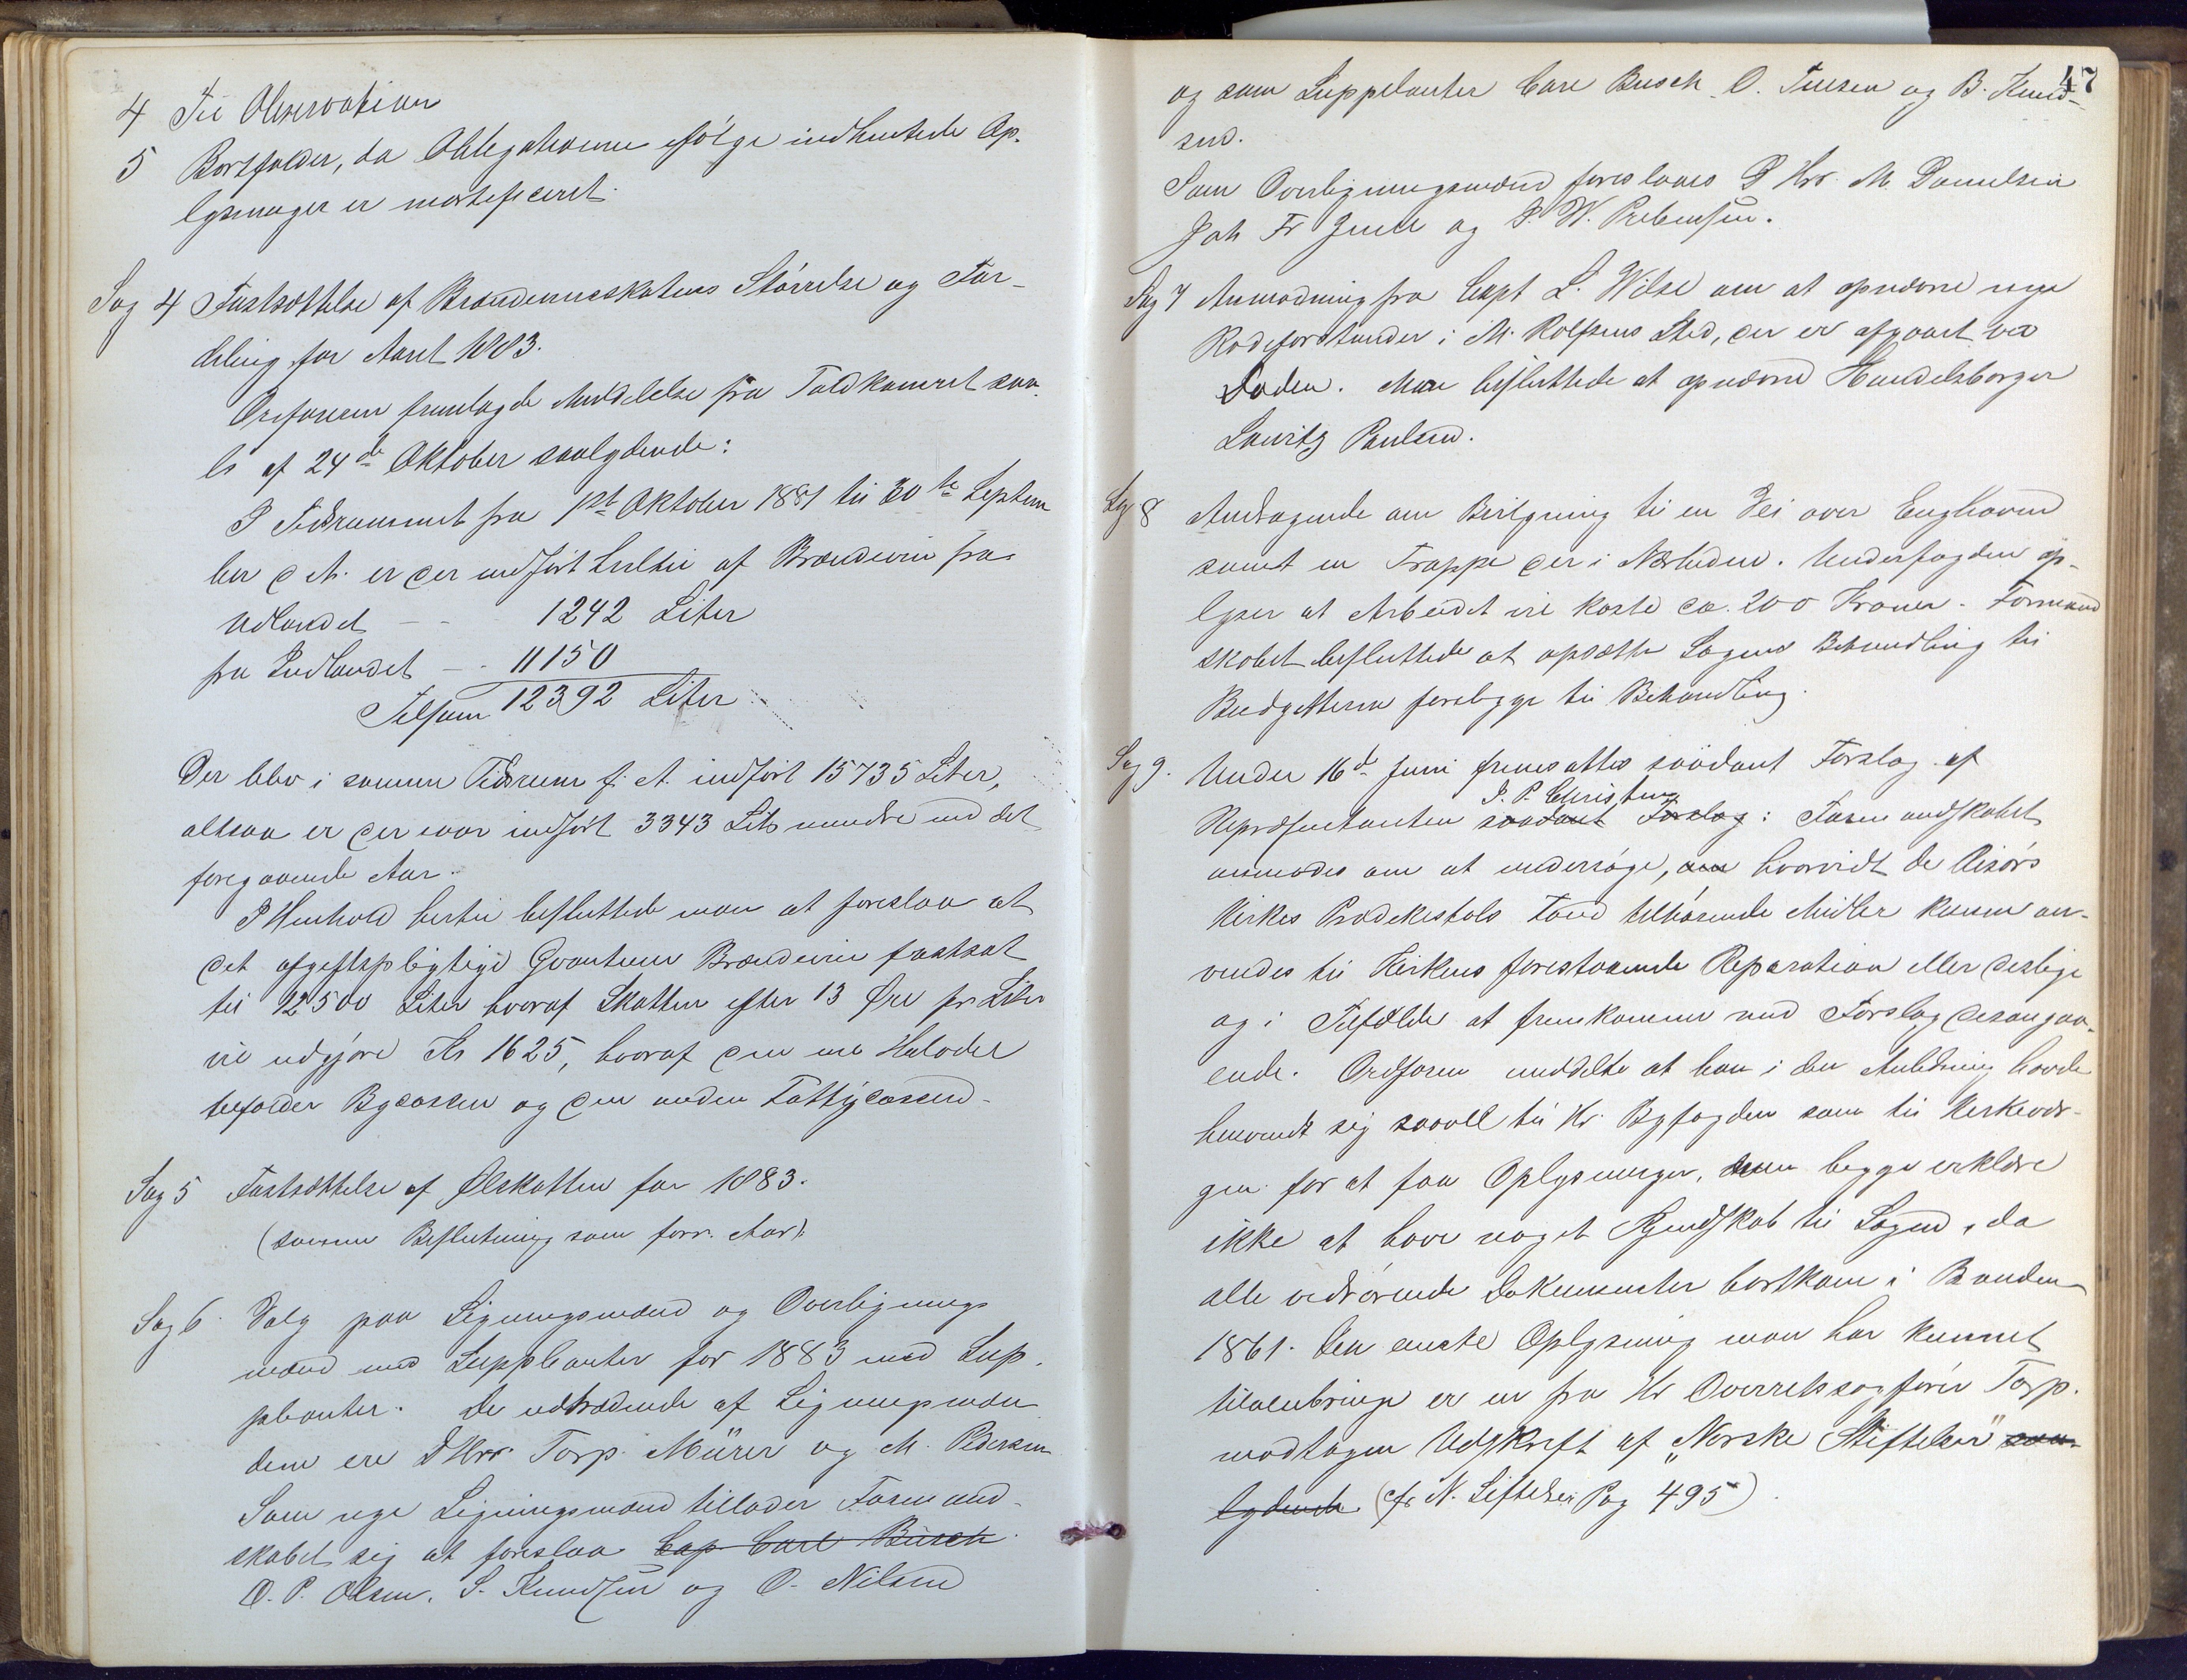 4 Til Observation
5 Bortfalder, da Obligationen ifølge indhentede Op-
lysninger er mortificeret.
Sag 4 Fastsættelse af Brændevinsskatens Størrelse og For-
deling for Aaret 1883.
Ordføreren fremlagde Meddelelse fra Toldkameret saa-
ls af 24de Oktober saalydende:
I Tidsrummet fra 1st Oktober 1881 til 30te Septem
ber d. A. er der indført hertil af Brændevin fra
Udlandet - - 1242 Liter
fra Indlandet - - 11150
Tilsam 12392 Liter
Der blev i samme Tidsrum f. A. indført 15735 Liter,
altsaa er der iaar indført 3343 Lit mindre end det
foregaaende Aar.
I Henhold hertil besluttede man at foreslaa at
det afgiftspligtige Qvantum Brændevin fastsat
til 12500 Liter hvoraf Skatten efter 13 Øre pr Liter
vil udgjøre Kr 1625, hvoraf den ene Halvdel
tilfalder Bycassen og den anden Fattigcassen.
Sag 5 Fastsættelse af Ølskatten for 1883.
(samme Beslutning som forr. Aar).
Sag 6 Valg paa Ligningsmænd og Overlignings
mænd med Suppleanter for 1883 med Sup-
pleanter. De udtrædende af Ligningsmæn
dene ere DHrr Torp. Mürer og M. Pedersen
Som nye Ligningsmænd tillader Formand-
skabet sig at foreslaa Cap. Carl Busch
O. P. Olsen, S. Knudsen og O. Nilsen
47
og som Suppleanter Carl Busch O. Tulsen og B. Knud-
sen.
Som Overligningsmænd foreslaaes D Hrr. M. Danielsen
Joh Fr Juell og P. W. Prebensen.
Sag 7 Anmodning fra Capt L. Wilse om at opnævne nye
Rodeforstander i M. Rolfsens Sted, der er afgaaet ved
Døden. Man besluttede at opnævne Handelsborger
Lauritz Paulsen.
Sag 8 Andragende om Bevilgning til en Vei over Enghaven
samt en Trappe der i Nærheden. Underfogden op-
lyser at Arbeidet vil koste ca. 200 Kroner. Formand
skabet besluttede at opsætte Sagens Behandling til
Budgetterne foreligge til Behandling.
Sag 9. Under 16de Juni fremsattes saadant Forslag af
Repræsentanten saadant Forslag: Formandskabet
J. P. Christensen
anmodes om at undersøge, om hvorvidt de Risørs
Kirkes Prædekestols Fond tilhørende Midler kunne an-
vendes til Kirkens forestaaende Reparation eller deslige
og i Tilfælde at fremkomme med Forslag desangaa-
ende. Ordføren meddelte at han i den Anledning havde
henvendt sig saavel til Hr. Byfogden som til Kirkevær-
gen for at faa Oplysninger, men begge erklære
ikke at have noget Kjendskab til Sagen, da
alle vedrørende Dokumenter bortkom i Branden
1861. Den eneste Oplysning man har kunnet
tilveiebringe er en fra Hr Overretssagfører Torp
modtagen Udskrift af "Norske Stiftelser" saa-
lydende (cfr N. Stiftelser Pag 495).